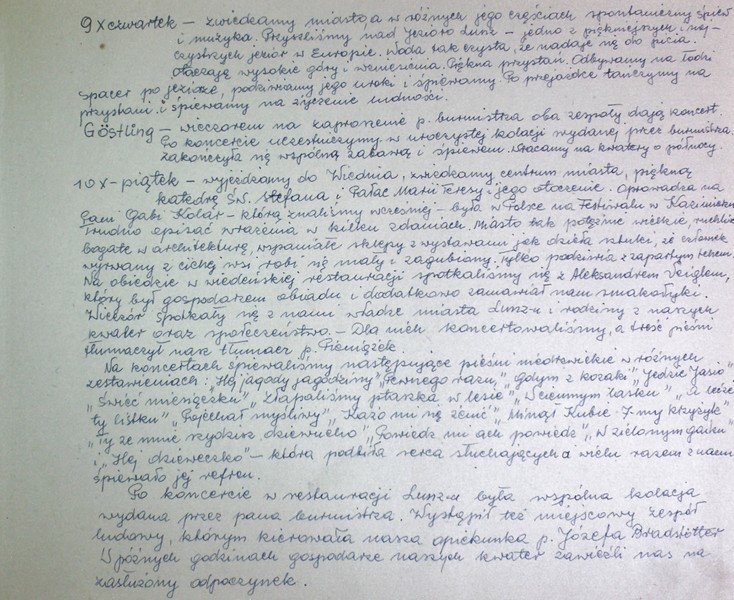 9 X czwartek – zwiedzamy miasto, a w różnych jego częściach spontaniczny śpiew
i muzyka. Przyszliśmy nad Jezioro Lunz – jedno z piękniejszych i naj-
czystrzych jezior w Europie. Woda tak czysta, że nadaje się do picia.
Otaczają wysokie góry i wzniesienia. Piękna przystań. Odbywamy na łodzi
spacer po jeziorze, podziwiamy jego uroki i śpiewamy. Po przejażdce tańczymy na
przystani i śpiewamy na życzenie ludności.
Göstling – wieczorem na zaproszenie p. burmistrza oba zespoły dają koncert.
Po koncercie uczestniczymy w uroczystej kolacji wydanej przez burmistrza.
Zakończyła się wspólną zabawą i śpiewem. Wracamy na kwatery o północy.
10 X – piątek – wyjeżdzamy do Wiednia, zwiedzamy centrum miasta, piękną
katedrę Św. Stefana i Pałac Marii Teresy i jego otoczenie. Oprowadza nas
Pani Gabi Kolar – którą znaliśmy wcześniej – była w Polsce na Festiwalu w Kazimierzu
Trudno opisać wrażenia w kilku zdaniach. Miasto tak potężnie wielkie, ruchliwe
bogate w architekturę, wspaniałe sklepy z wystawami jak dzieła sztuki, że człowiek
wyrwany z cichej wsi robi się mały i zagubiony. Tylko podziwia z zapartym tchem.
Na obiedzie w wiedeńskiej restauracji spotkaliśmy się z Aleksandrem Veiglem,
który był gospodarzem obiadu i dodatkowo zamawiał nam smakołyki.
Wieczór spotkały się z nami władze miasta Lunz-u i rodziny z naszych
kwater oraz społeczeństwo. – Dla nich koncertowaliśmy, a treść pieśni
tłumaczył nasz tłumacz p. Pieniążek.
Na koncertach śpiewaliśmy następujące pieśni niedrzwickie w różnych
zestawieniach: "Hej jagody jagodziny" "Pewnego razu," "Gdym z kozaki" "Jedzie Jasio"
"Świeć miesiączku" "Złapaliśmy ptaszka w lesie" "W ciemnym lasku" "A lećże
ty listku" "Pojechał myśliwy" "Każo mi się żenić" "Minął Kubić" "I my krzyżyk"
"Ty ze mnie szydzisz dziewucho" "Powiedz mi ach powiedz" "W zielonym gaiku"
i "Hej dzieweczko" – która podbiła serca słuchających a wielu razem z nami
śpiewało jej refren.
Po koncercie w restauracji Lunz-u była wspólna kolacja
wydana przez pana burmistrza. Wystąpił też miejscowy zespół
ludowy, którym kierowała nasza opiekunka p. Józefa Bradstötter
W późnych godzinach gospodarze naszych kwater zawieźli nas na
zasłużony odpoczynek.